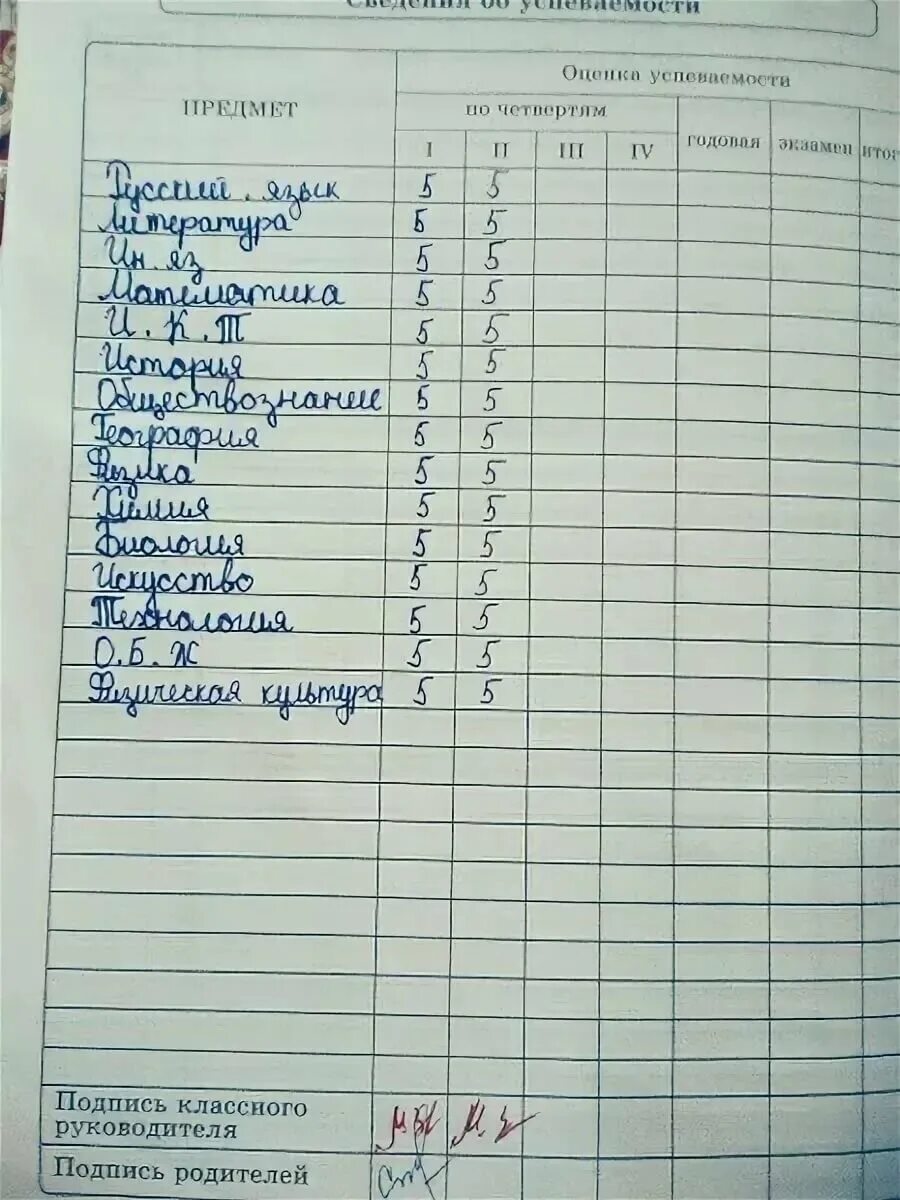 Сведения об успеваемости
Оценка успеваемости
ПРЕДМЕТ
по четвертям
годовая экзамен итог
I II III IV
Русский язык 5 5
Литература 5 5
Ин. яз 5 5
Математика 5 5
И. К. Т 5 5
История 5 5
Обществознание 5 5
География 5 5
Физика 5 5
Химия 5 5
Биология 5 5
Искусство 5 5
Технология 5 5
О.Б.Ж 5 5
Физическая культура 5 5
Подпись классного
руководителя
Подпись родителей